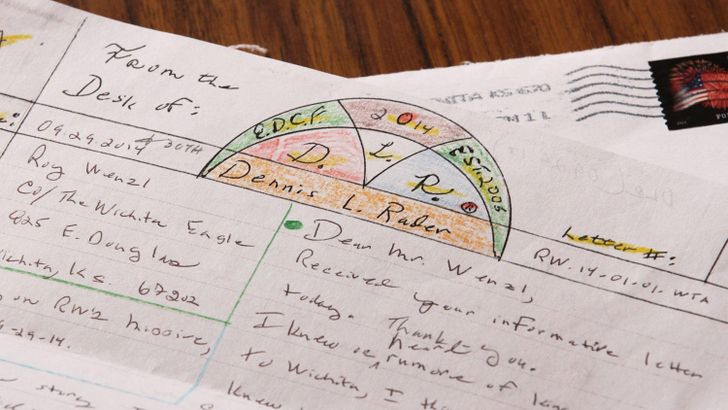 From the
Desk of:
09.29.2014 30TH
E.D.C.F. 2014 EST.2005
D. L. R. ®
Dennis L. Rader
Letter #:
RW.14-01-01. WTA
Roy Wenzl
C/O The Wichita Eagle
825 E. Douglas
Wichita, Ks. 67202
on RWZ missive,
9-29-14.
Dear Mr. Wenzl,
Received your informative letter
today. Thank you.
I knew or heard rumors of
to Wichita, I
knew
story
WICHITA KS 670